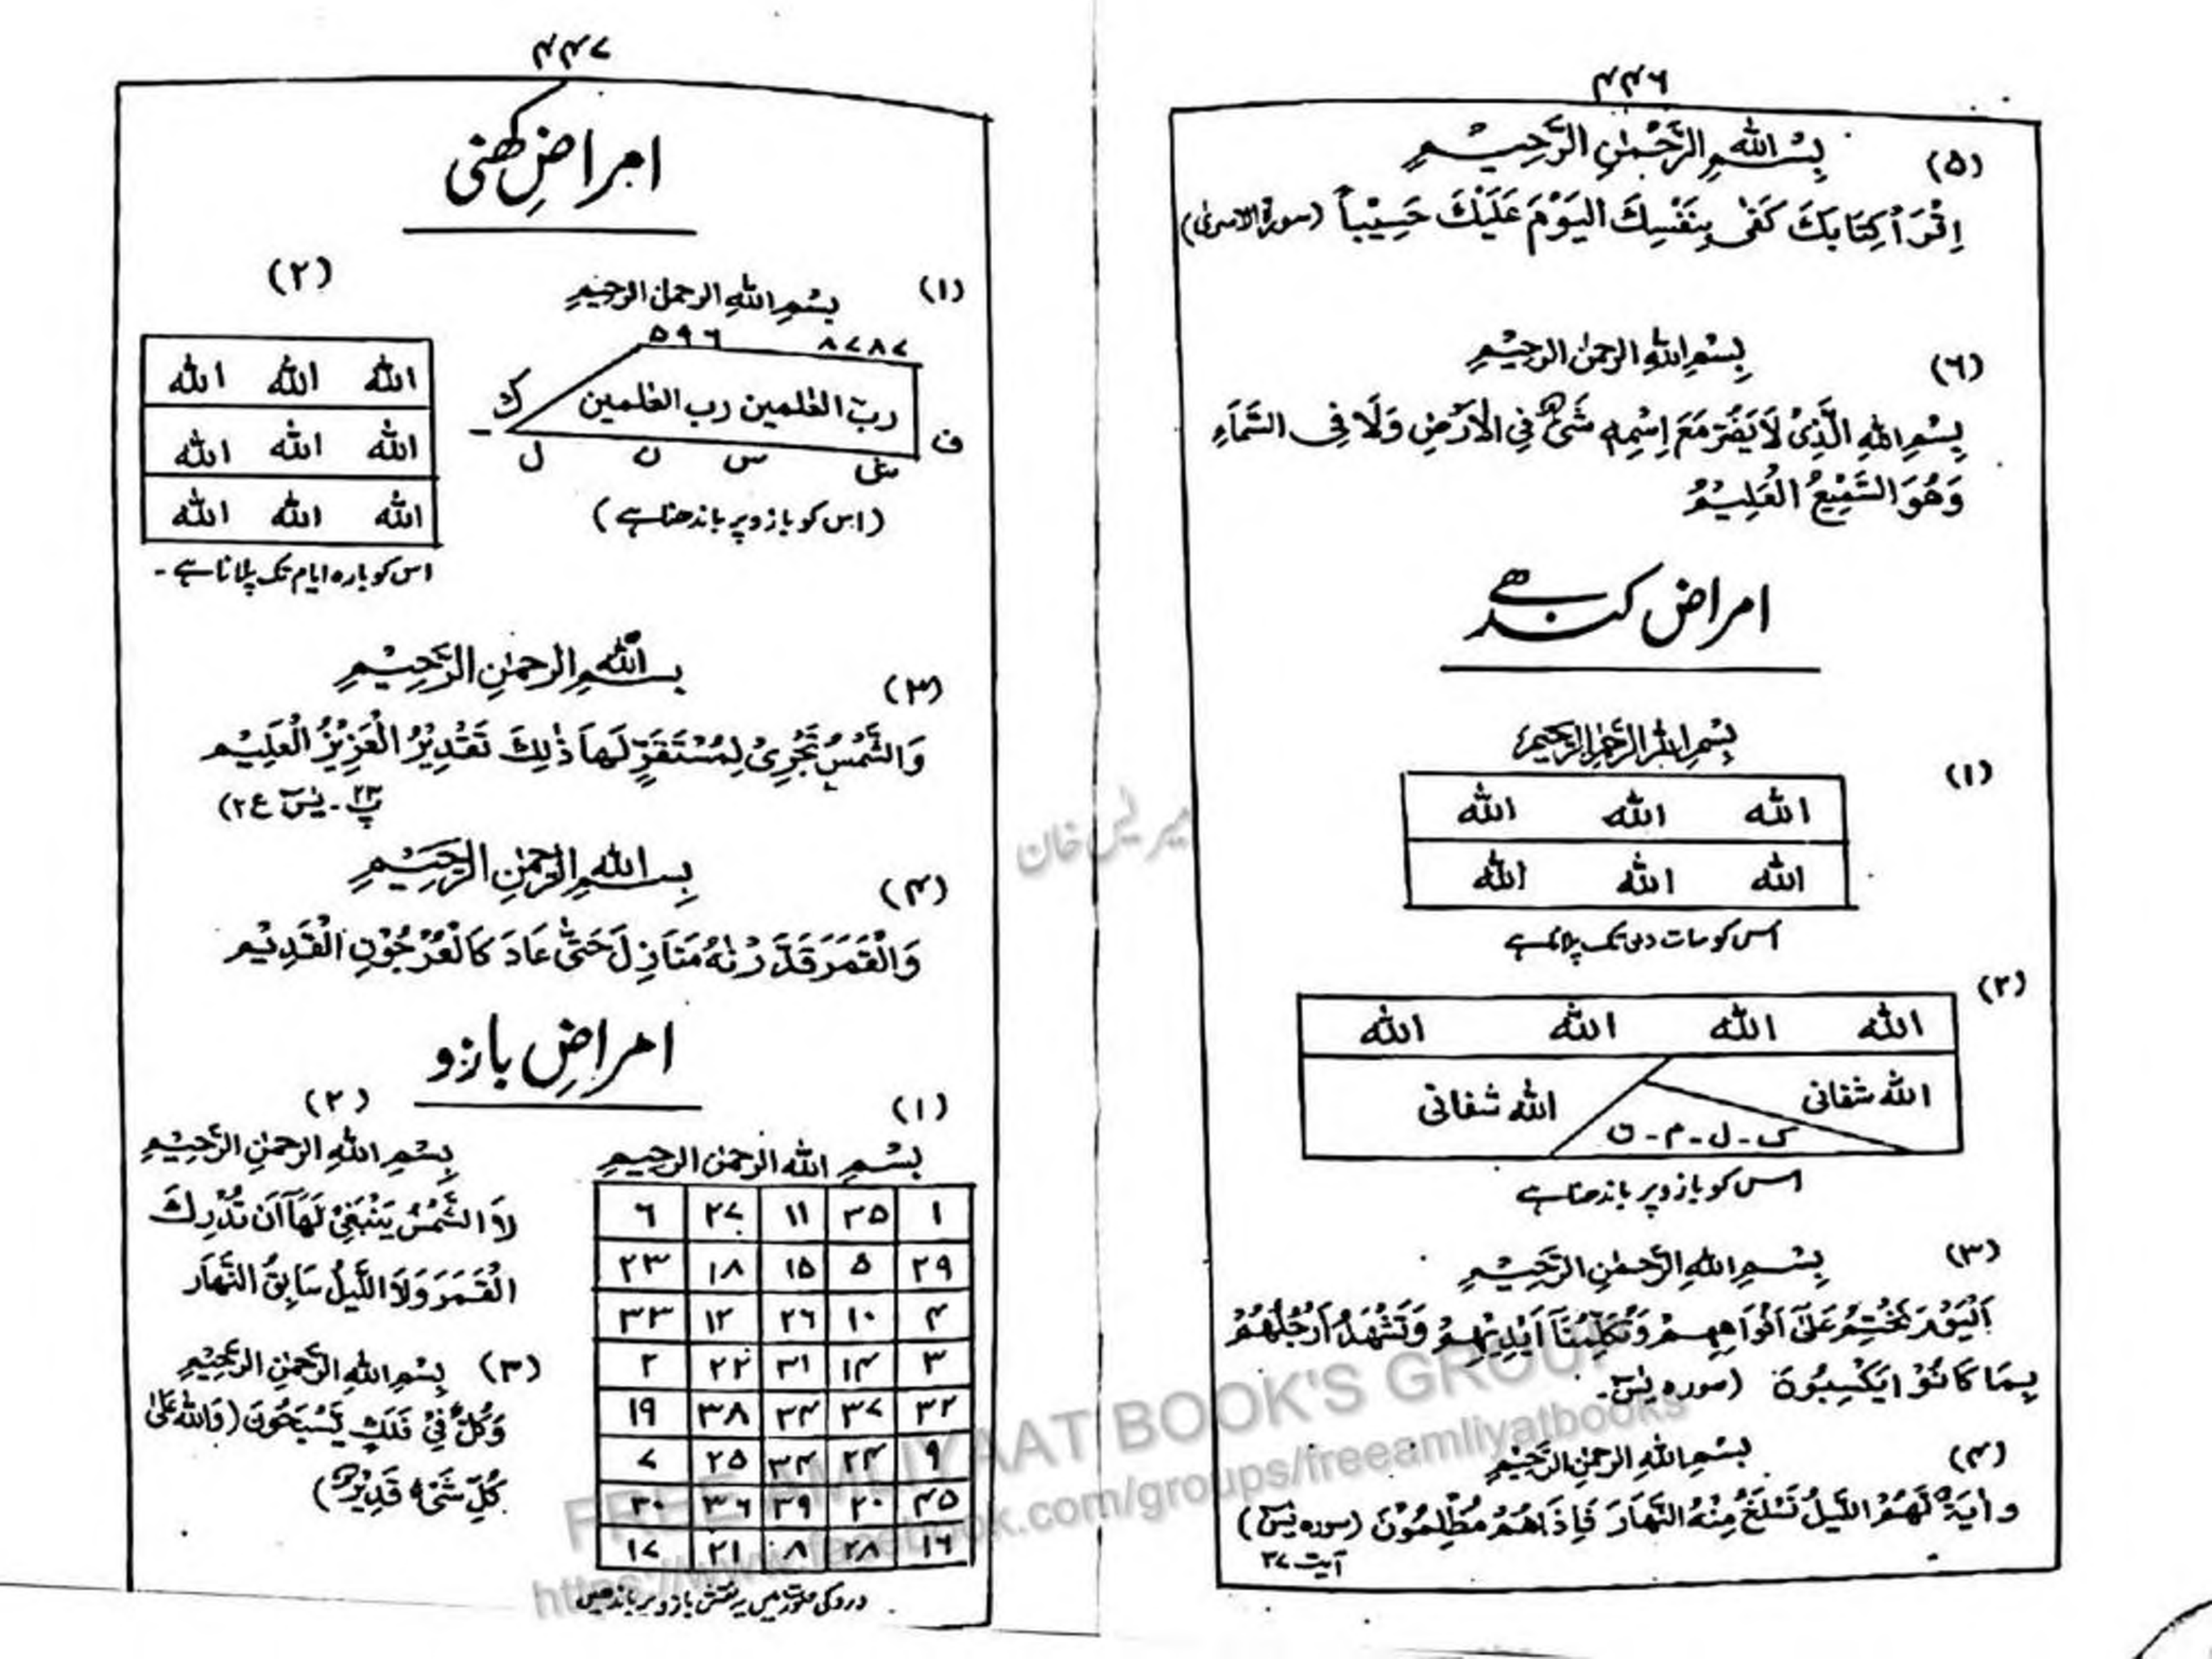 ۴۴۶
(۵) بِسْمِ اللهِ الرَّحْمٰنِ الرَّحِيْمِ
اِقْرَاْ كِتَابَكَ كَفٰى بِنَفْسِكَ الْيَوْمَ عَلَيْكَ حَسِيْباً (سورة الاسرىٰ)
(۶) بِسْمِ اللهِ الرحمٰن الرحِيْمِ
بِسْمِ اللهِ الَّذِىْ لَا يَضُرُّ مَعَ اِسْمِهٖ شَىْءٌ فِى الْاَرْضِ وَلَا فِى السَّمَآءِ
وَهُوَ السَّمِيْعُ الْعَلِيْمُ
امراض کندھے
(۱) بِسْمِ اللهِ الرَّحْمٰنِ الرَّحِيْمِ
الله الله الله
الله الله الله
اس کو سات دن تک پلانا ہے
(۲)
الله الله الله الله
الله شفانی الله شفانی
ک - ل - م - ن
اس کو بازو پر باندھنا ہے
(۳) بِسْمِ اللهِ الرَّحْمٰنِ الرَّحِيْمِ
اَلْيَوْمَ نَخْتِمُ عَلٰٓى اَفْوَاهِهِمْ وَتُكَلِّمُنَآ اَيْدِيْهِمْ وَتَشْهَدُ اَرْجُلُهُمْ
بِمَا كَانُوْا يَكْسِبُوْنَ (سوره يٰسٓ۔
(۴) بِسْمِ اللهِ الرحمٰنِ الرَّحِيْمِ
واٰيَةٌ لَّهُمُ اللَّيْلُ نَسْلَخُ مِنْهُ النَّهَارَ فَاِذَا هُمْ مُّظْلِمُوْنَ (سوره يٰسٓ)
آیت ۳۷
۴۴۷
امراضِ کهنی
(۱) بِسْمِ اللهِ الرحمٰن الرحِيمِ
۵۹۶ ۸۷۸۷
ربّ العٰلمين رب العٰلمين
ک
ف
ل ن س
(اس کو بازو پر باندھنا ہے)
(۲)
الله الله الله
الله الله الله
الله الله الله
اس کو بارہ ایام تک پلانا ہے۔
(۳) بِسْمِ اللهِ الرحمٰنِ الرَّحِيْمِ
وَالشَّمْسُ تَجْرِىْ لِمُسْتَقَرٍّ لَّهَا ذٰلِكَ تَقْدِيْرُ الْعَزِيْزُ الْعَلِيْم
پ ۲۳ - يٰسٓ ع ۲)
(۴) بِسْمِ اللهِ الرَّحْمٰنِ الرَّحِيْمِ
وَالْقَمَرَ قَدَّرْنٰهُ مَنَازِلَ حَتّٰى عَادَ كَالْعُرْجُوْنِ الْقَدِيْم
امراضِ بازو
(۱) بِسْمِ الله الرحمٰن الرحيمِ
۱ ۳۵ ۱۱ ۲۷ ۶
۲۹ ۵ ۱۵ ۱۸ ۲۳
۴ ۱۰ ۲۶ ۱۲ ۳۳
۳ ۱۴ ۳۱ ۲۲ ۲
۳۲ ۳۷ ۲۴ ۳۸ ۱۹
۹ ۲۴ ۳۴ ۲۵ ۷
۴۵ ۲۰ ۳۹ ۳۶ ۳۰
۱۶ ۲۸ ۸ ۲۱ ۱۷
درد کی صورت میں یہ نقش بازو پر باندھیں
(۲)
بِسْمِ اللهِ الرحمٰنِ الرَّحِيْمِ
لَا الشَّمْسُ يَنْبَغِىْ لَهَآ اَنْ تُدْرِكَ
الْقَمَرَ وَلَا اللَّيْلُ سَابِقُ النَّهَار
(۳) بِسْمِ اللهِ الرَّحْمٰنِ الرَّحِيْمِ
وَكُلٌّ فِىْ فَلَكٍ يَّسْبَحُوْنَ (وَاللهُ عَلٰى
كُلِّ شَىْءٍ قَدِيْرٌ)
میر یٰس خان
FREE AMLIYAAT BOOK'S GROUP
https://www.facebook.com/groups/freeamliyatbooks